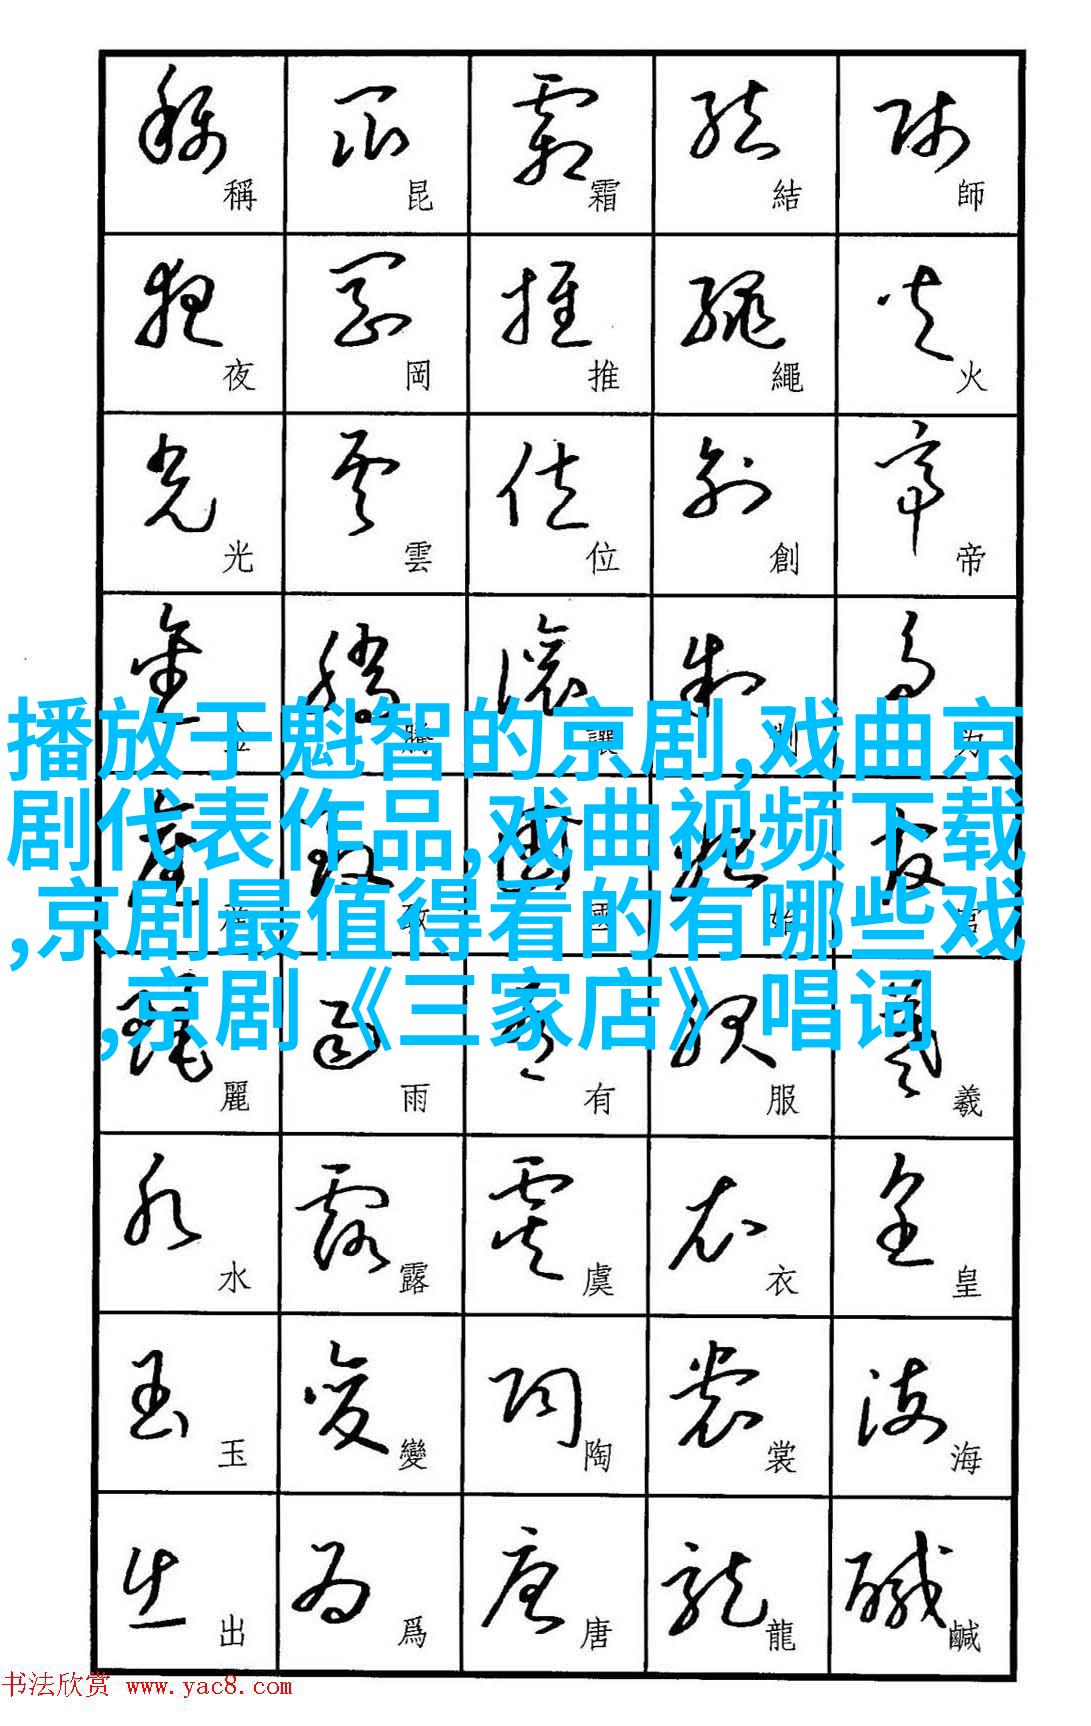 稱 昆 霜 結 師
夜 岡 推 繩 火
光 雲 位 創 帝
金 騰 讓 制
播放于魁智的京剧,戏曲京
剧代表作品,戏曲视频下载
,京剧最值得看的有哪些戏
,京剧《三家店》唱词
致 國 始 官
麗 雨 有 服 羲
水 露 虞 衣 皇
玉 變 陶 裳 海
出 爲 唐 龍 鹹
书法欣赏 www.yac8.com